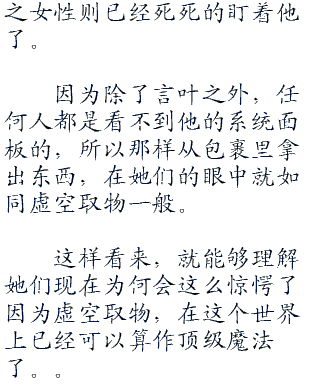 之女性则已经死死的盯着他
了。
因为除了言叶之外，任
何人都是看不到他的系统面
板的，所以那样从包裹里拿
出东西，在她们的眼中就如
同虚空取物一般。
这样看来，就能够理解
她们现在为何会这么惊愕了
因为虚空取物，在这个世界
上已经可以算作顶级魔法
了。。